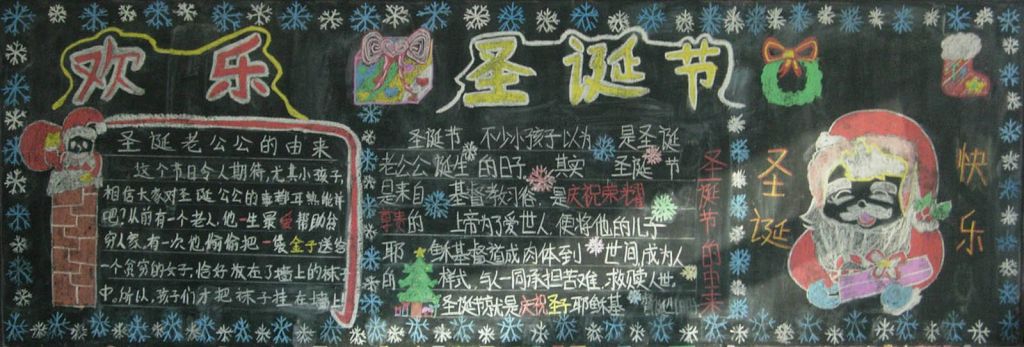 欢乐
圣诞节
圣诞老公公的由来
这个节日令人期待,尤其小孩子
相信大家对圣诞公公的故事耳熟能详
吧?从前有一个老人,他一生最爱帮助贫
穷人家,有一次他偷偷把一袋金子送给
一个贫穷的女子,恰好放在了墙上的袜子
中。所以,孩子们才把袜子挂在墙上
圣诞节 不少小孩子以为 是圣诞
老公公诞生的日子,其实 圣诞节
是来自 基督教习俗 是庆祝荣耀
尊贵的 上帝为了爱世人 便将他的儿子
耶稣基督道成肉体到 世间成为人
的 样式,与人一同承担苦难,拯救人世
圣诞节就是庆祝圣子耶稣基
圣诞节的由来
圣诞
快乐